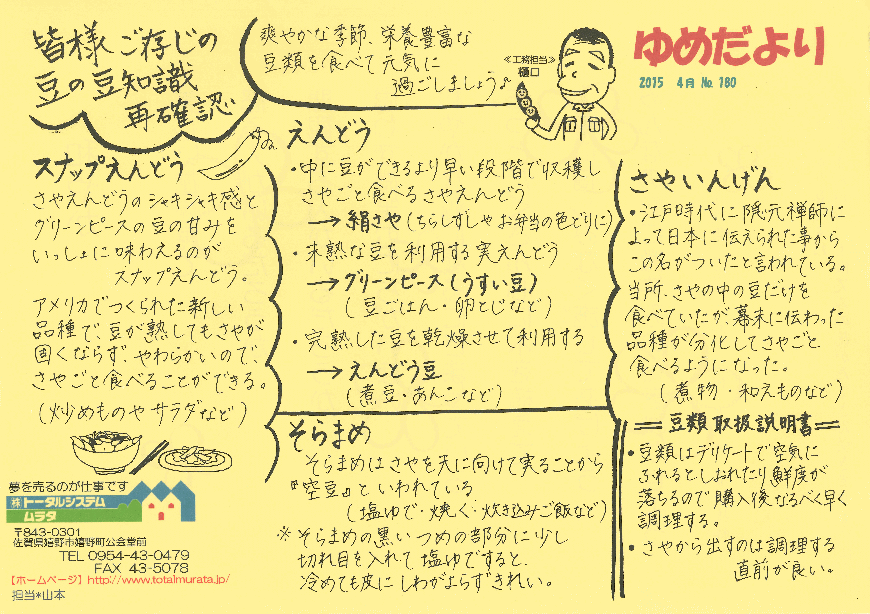 皆様ご存じの
豆の豆知識
再確認
爽やかな季節、栄養豊富な
豆類を食べて元気に
過ごしましょう♪
≪工務担当≫
樋口
ゆめだより
2015 4月 No.180
スナップえんどう
さやえんどうのシャキシャキ感と
グリーンピースの豆の甘みを
いっしょに味わえるのが
スナップえんどう。
アメリカでつくられた新しい
品種で、豆が熟してもさやが
固くならず、やわらかいので、
さやごと食べることができる。
(炒めものやサラダなど)
えんどう
・中に豆ができるより早い段階で収穫し
さやごと食べるさやえんどう
→絹さや(ちらしずしやお弁当の色どりに)
・未熟な豆を利用する実えんどう
→グリーンピース(うすい豆)
(豆ごはん・卵とじなど)
・完熟した豆を乾燥させて利用する
→えんどう豆
(煮豆・あんこなど)
そらまめ
そらまめはさやを天に向けて実ることから
『空豆』といわれている
(塩ゆで・焼く・炊き込みご飯など)
※そらまめの黒いつめの部分に少し
切れ目を入れて塩ゆですると、
冷めても皮にしわがよらずきれい。
さやいんげん
・江戸時代に隠元禅師に
よって日本に伝えられた事から
この名がついたと言われている。
当所、さやの中の豆だけを
食べていたが、幕末に伝わった
品種が分化してさやごと
食べるようになった。
(煮物・和えものなど)
＝豆類取扱説明書＝
・豆類はデリケートで空気に
ふれるとしおれたり鮮度が
落ちるので購入後なるべく早く
調理する。
・さやから出すのは調理する
直前が良い。
夢を売るのが仕事です
㈱トータルシステム
ムラタ
〒843-0301
佐賀県嬉野市嬉野町公会堂前
TEL 0954-43-0479
FAX 43-5078
【ホームページ】http://www.totalmurata.jp/
担当*山本